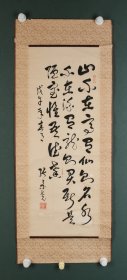 山不在高有仙則名水
不在深有龍則靈斯是
陋室惟吾德馨
戊午年春